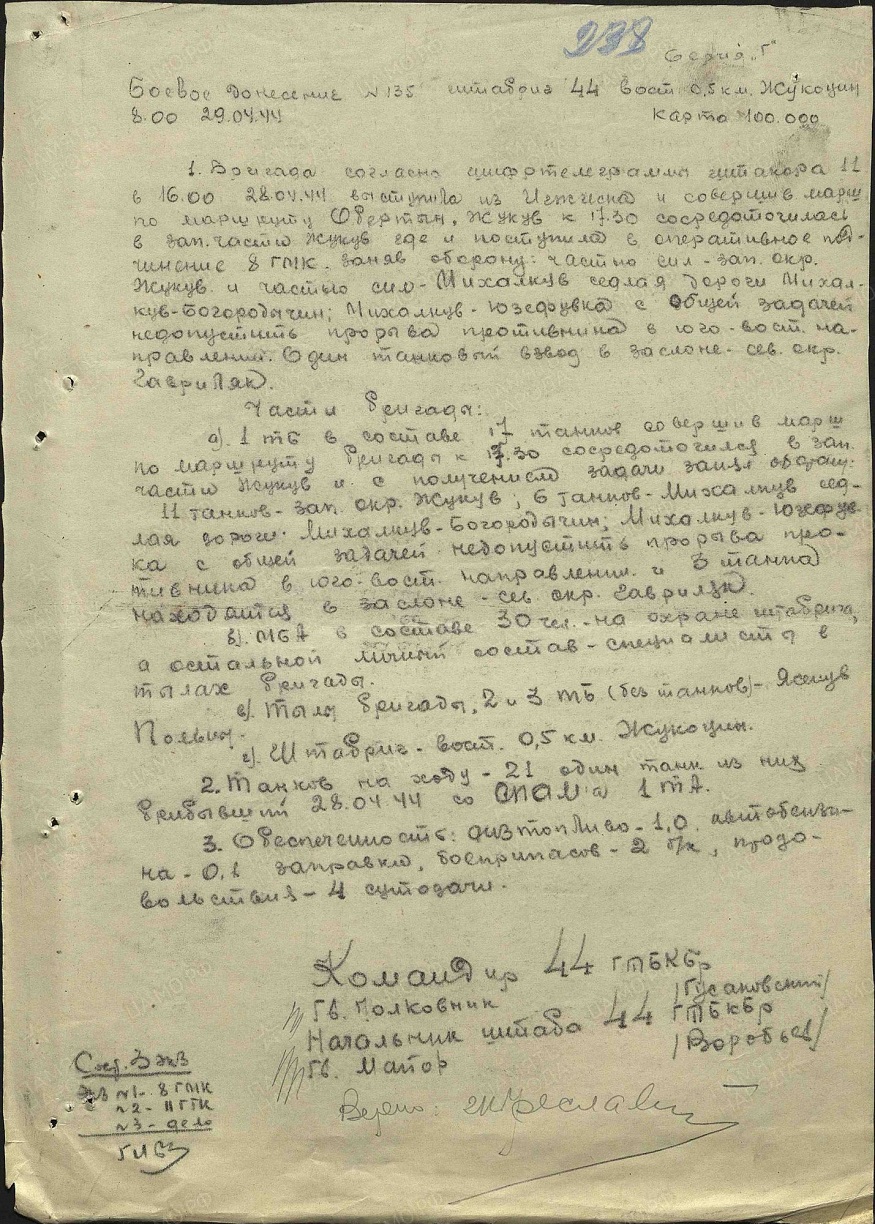 238
Серия „Г"
Боевое донесение №135 штабриг 44 вост. 0,5 км. Жукоцин
8.00 29.04.44 Карта 100.000
1. Бригада согласно шифртелеграммы штакора 11
в 16.00 28.04.44 выступила из и совершив марш
по маршруту Обертын, Жукув к 17.30 сосредоточилась
в зап. части Жукув где и поступила в оперативное под-
чинение 8 ГМК. заняв оборону: частью сил - зап. окр.
Жукув и частью сил - Михалкув седлая дороги Михал-
кув-Богородычин; Михалкув-Юзефувка с общей задачей
недопустить прорыва противника в юго-вост. на-
правлении. Один танковый взвод в заслоне - сев. окр.
Гавриляк.
Части бригады:
а) 1 тб в составе 17 танков совершив марш
по маршруту бригады к 17.30 сосредоточился в зап.
части Жукув и с получением задачи занял оборону:
11 танков - зап. окр. Жукув; 6 танков - Михалкув сед-
лая дороги: Михалкув-Богородычин; Михалкув-Юзефув-
ка с общей задачей недопустить прорыва про-
тивника в юго-вост. направлении и 3 танка
находятся в заслоне - сев. окр. Гавриляк.
в). МБА в составе 30 чел. - на охране штабрига,
а остальной личный состав - специалисты в
тылах бригады.
в) Тылы бригады, 2 и 3 тб (без танков) - Ясенув
Польны.
г) Штабриг - вост. 0,5 км. Жукоцин.
2. Танков на ходу - 21 один танк из них
прибывший 28.04.44 со СПАМ'а 1 ТА.
3. Обеспеченность: дизтопливо - 1,0 автобензи-
на - 0,1 заправки, боеприпасов - 2 б/к, продо-
вольствия - 4 сутодачи.
Командир 44 ГТБКбр
Гв. Полковник /Гусаковский/
Начальник штаба 44 ГТБкбр
Гв. Майор /Воробьев/
Верно:
Сост. 3 экз
экз №1 - 8 ГМК
№2 - 11 ГТК
№3 - дело